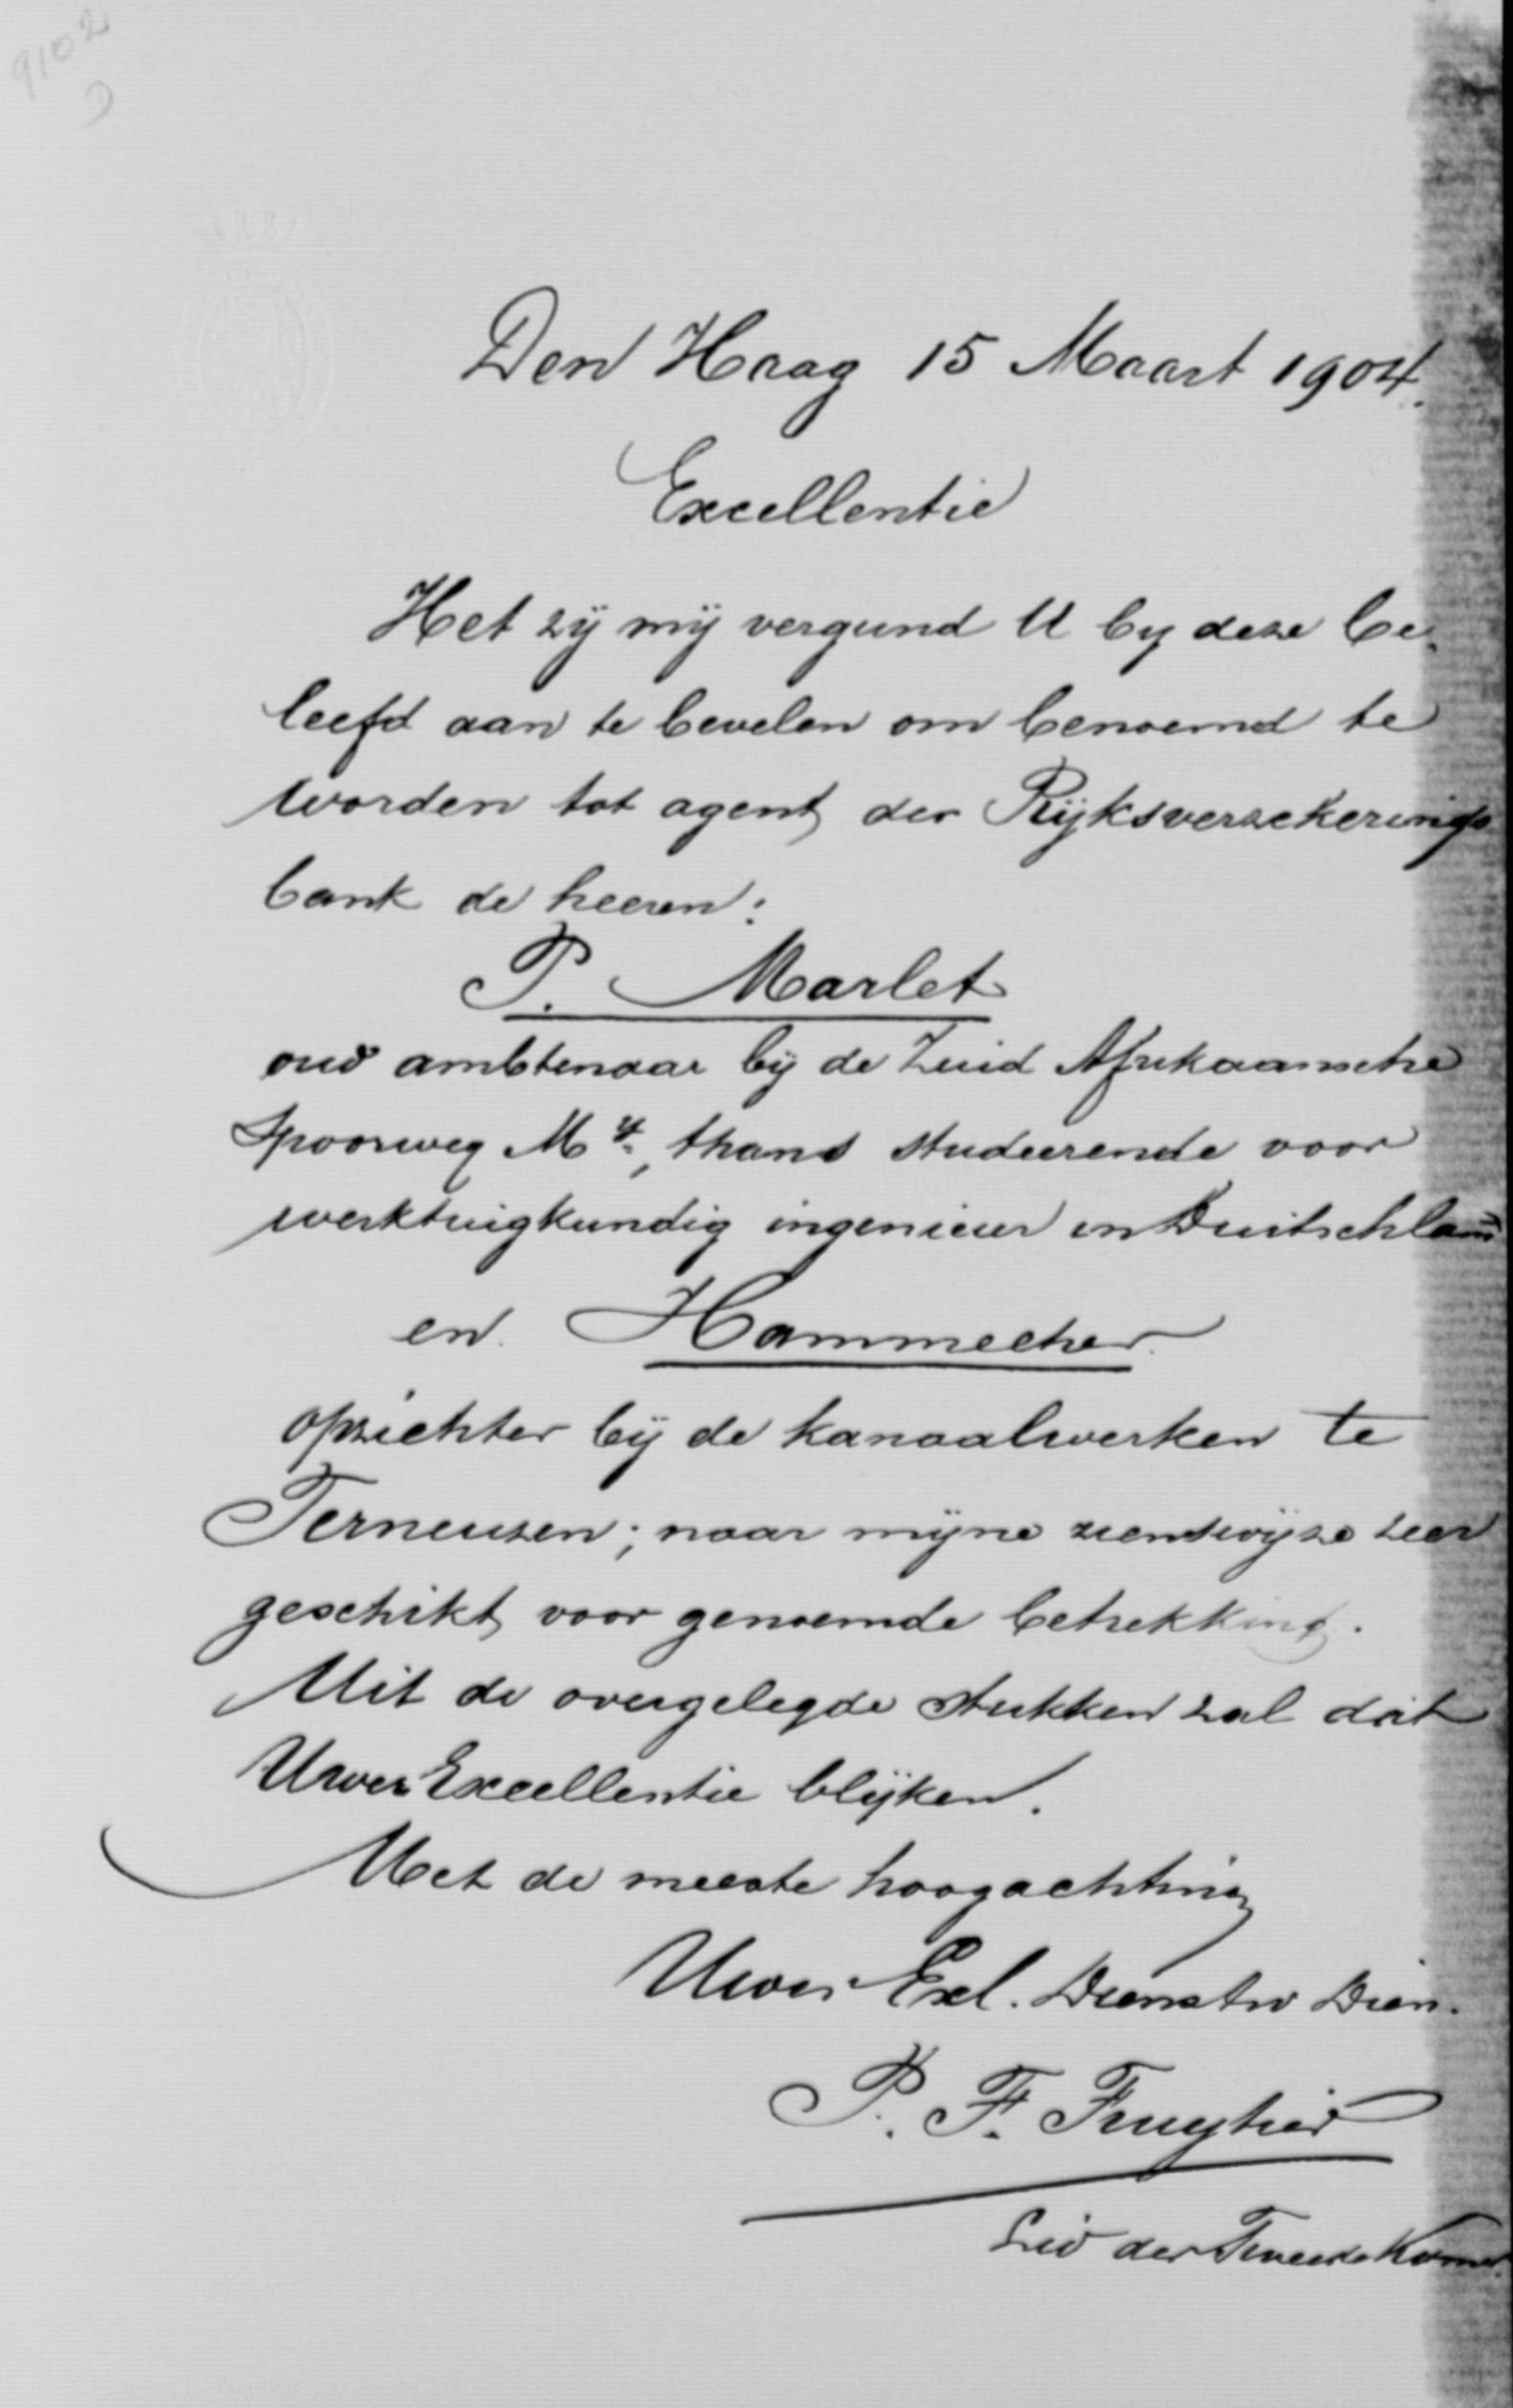 9102
D
Den Haag 15 Maart 1904.
Excellentie
Het zij mij vergund U by deze be-
leefd aan te bevelen om benoemd te
worden tot agent der Rijksverzekerings
bank de heeren:
P. Marlet
oud ambtenaar bij de Zuid Afrikaansche
Spoorweg Mij, thans studeerende voor
werktuigkundig ingenieur in Duitschland
en Hammecher
opzichter bij de kanaalwerken te
Terneuzen; naar mijne zienswijze zeer
geschikt voor genoemde betrekking.
Uit de overgelegde stukken zal dat
Uwer Excellentie blijken.
Met de meeste hoogachting
Uwer Exl. Dienstw Dien.
P. F. Fruytier
Lid der Tweede Kamer.